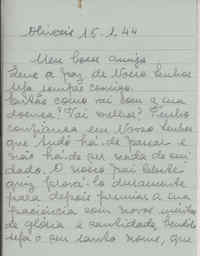 Olivais 15.1.44
Meu bom amigo
Que a paz de Nosso Senhor
seja sempre contigo.
Então como vai com a sua
doença? Vai melhor? Tenho
confiança em Nosso Senhor
que tudo há-de passar e
não há-de ser nada de cui-
dado. O nosso pai celeste
quiz prová-lo duramente
para depois premiar a sua
paciência com novos
de glória e santidade. Bendito
seja o seu santo nome, que